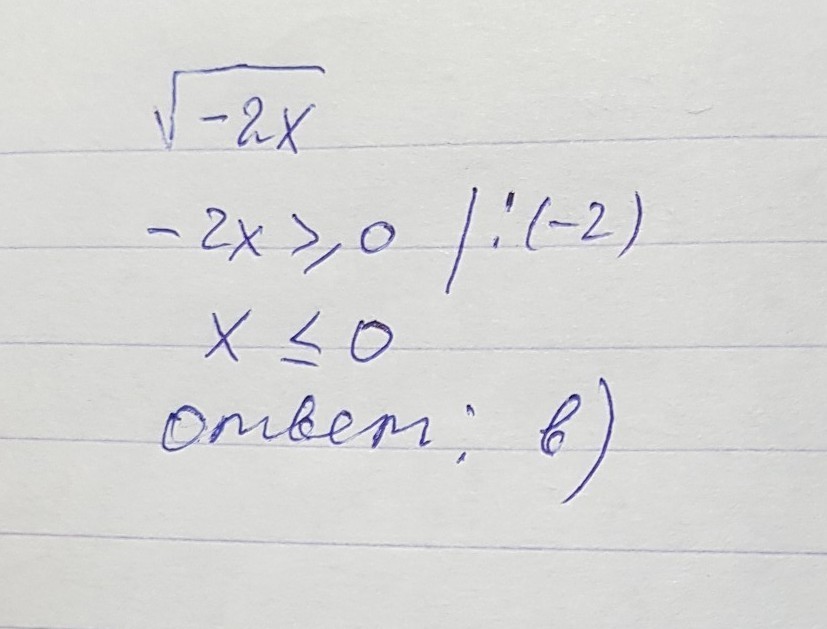 √-2x
-2x ≥ 0 / : (-2)
x ≤ 0
ответ: в)